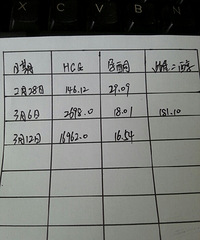 X C V B N
日期 HCG 孕酮 雌二醇
2月28日 146.12 29.09
3月6日 2698.0 18.01 181.10
3月12日 16962.0 16.54